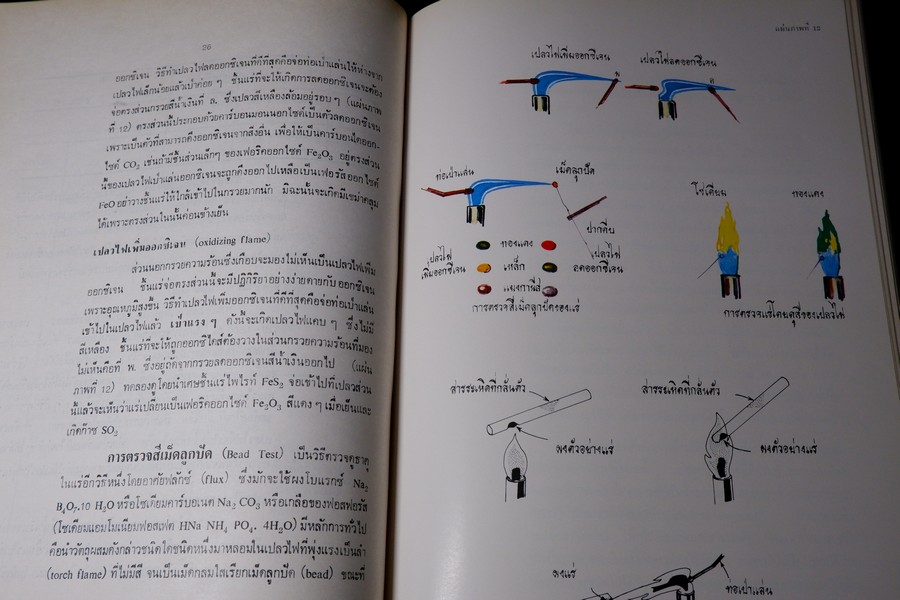 26
ออกซิเจน วิธีทำเปลวไฟลดออกซิเจนที่ดีที่สุดคือจ่อท่อเป่าแล่นให้ห่างจาก
เปลวไฟเล็กน้อยแล้วเป่าค่อย ๆ ชิ้นแร่ที่จะให้เกิดการลดออกซิเจนจะต้อง
จ่อตรงส่วนกรวยสีน้ำเงินที่ ล. ซึ่งเปลวสีเหลืองล้อมอยู่รอบ ๆ (แผ่นภาพ
ที่ 12) ตรงส่วนนี้ประกอบด้วยคาร์บอนมอนนอกไซด์เป็นตัวลดออกซิเจน
เพราะเป็นตัวที่สามารถดึงออกซิเจนจากสิ่งอื่น เพื่อให้เป็นคาร์บอนไดออก-
ไซด์ CO2 เช่นถ้ามีชิ้นส่วนเล็กๆ ของเฟอริคออกไซด์ Fe2O3 อยู่ตรงส่วน
นี้ของเปลวไฟเป่าแล่นออกซิเจนจะถูกดึงออกไปเหลือเป็นเฟอรัสออกไซด์
FeO อย่าวางชิ้นแร่ให้ใกล้เข้าไปในกรวยมากนัก มิฉะนั้นจะเกิดมีเขม่าคลุม
ได้เพราะตรงส่วนในนั้นค่อนข้างเย็น
เปลวไฟเพิ่มออกซิเจน (oxidizing flame)
ส่วนนอกกรวยความร้อนซึ่งเกือบจะมองไม่เห็นเป็นเปลวไฟเพิ่ม
ออกซิเจน ชิ้นแร่จ่อตรงส่วนนี้จะมีปฏิกิริยาอย่างง่ายดายกับ ออกซิเจน
เพราะอุณหภูมิสูงขึ้น วิธีทำเปลวไฟเพิ่มออกซิเจนที่ดีที่สุดคือจ่อท่อเป่าแล่น
เข้าไปในเปลวไฟแล้ว เป่าแรง ๆ ดังนี้จะเกิดเปลวไฟแคบ ๆ ซึ่งไม่มี
สีเหลือง ชิ้นแร่ที่จะให้ถูกออกซิไดส์ต้องวางในส่วนกรวยความร้อนที่มอง
ไม่เห็นคือที่ พ. ซึ่งอยู่ถัดจากกรวยลดออกซิเจนสีน้ำเงินออกไป (แผ่น
ภาพที่ 12) ทดลองดูโดยนำเศษชิ้นแร่ไพไรท์ FeS2 จ่อเข้าไปที่เปลวส่วน
นี้แล้วจะเห็นว่าแร่เปลี่ยนเป็นเฟอริคออกไซด์ Fe2O3 สีแดง ๆ เมื่อเย็นและ
เกิดก๊าซ SO2
การตรวจสีเม็ดลูกปัด (Bead Test) เป็นวิธีตรวจดูธาตุ
ในแร่อีกวิธีหนึ่งโดยอาศัยฟลักซ์ (flux) ซึ่งมักจะใช้ผงโบแรกซ์ Na2
B4O7.10 H2O หรือโซเดียมคาร์บอเนต Na2 CO3 หรือเกลือของฟอสฟอรัส
(โซเดียมแอมโมเนียมฟอสเฟต HNa NH4 PO4. 4H2O) มีหลักการทั่วไป
คือนำวัตถุผสมดังกล่าวชนิดใดชนิดหนึ่งมาหลอมในเปลวไฟที่พุ่งแรงเป็นลำ
(torch flame) ที่ไม่มีสี จนเป็นเม็ดกลมใสเรียกเม็ดลูกปัด (bead) ขณะที่
แผ่นภาพที่ 12
เปลวไฟเพิ่มออกซิเจน
เปลวไฟลดออกซิเจน
พ
ล
ท่อเป่าแล่น
เม็ดลูกปัด
ปากคีบ
โซเดียม
ทองแดง
เปลวไฟ
เพิ่มออกซิเจน
ทองแดง
เหล็ก
แมงกานีส
เปลวไฟ
ลดออกซิเจน
การตรวจสีเม็ดลูกปัดของแร่
การตรวจแร่โดยดูสีของเปลวไฟ
สารระเหิดที่กลั่นตัว
ผงตัวอย่างแร่
สารระเหิดที่กลั่นตัว
ผงตัวอย่างแร่
ผงแร่
ท่อเป่าแล่น